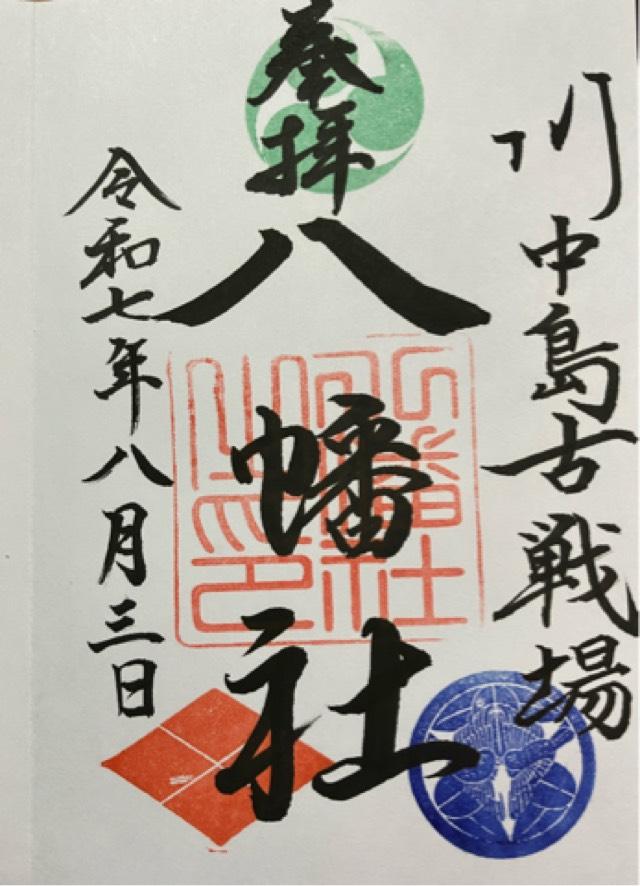 川中島古戦場
奉拝
八幡社
令和七年八月三日